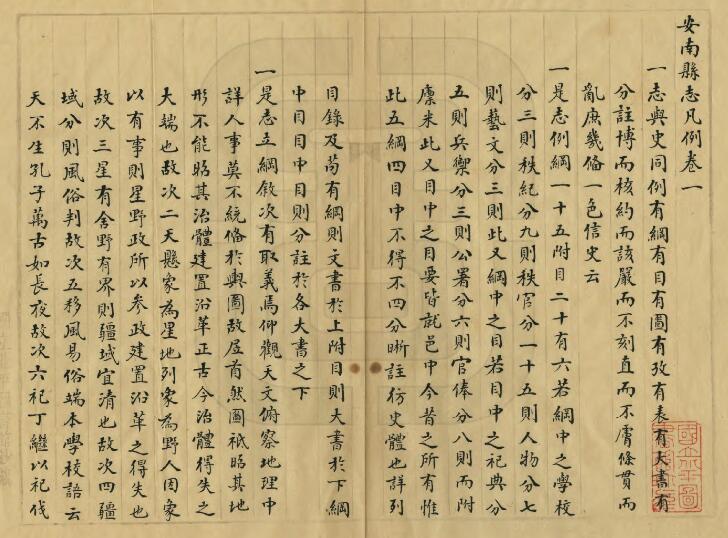 安南縣志凡例卷一
一志與史同例有綱有目有圖有攷有表有大書有
分註博而核約而該嚴而不刻直而不膚條貫而
亂庶幾備一邑信史云
一是志例綱一十五附目二十有六若綱中之學校
分三則秩紀分九則秩官分一十五則人物分七
則藝文分三則此又綱中之目若目中之祀典分
五則兵禦分三則公署分六則官俸分八則而附
廩米此又目中之目要皆就邑中今昔之所有惟
此五綱四目中不得不四分晰註仿史體也詳列
目錄及苟有綱則文書於上附目則大書於下綱
中目目中目則分註於各大書之下
一是志立綱敘次有取義焉仰觀天文俯察地理中
詳人事莫不統備於輿圖故居首然圖祇昭其地
形不能昭其治體建置沿革正古今治體得失之
大端也故次二天懸象為星地列象為野人因象
以有事則星野政所以參政建置沿革之得失也
故次三星有舍野有界則疆域宜清也故次四疆
域分則風俗判故次五移風易俗端本學校語云
天不生孔子萬古如長夜故次六祀丁繼以祀伐